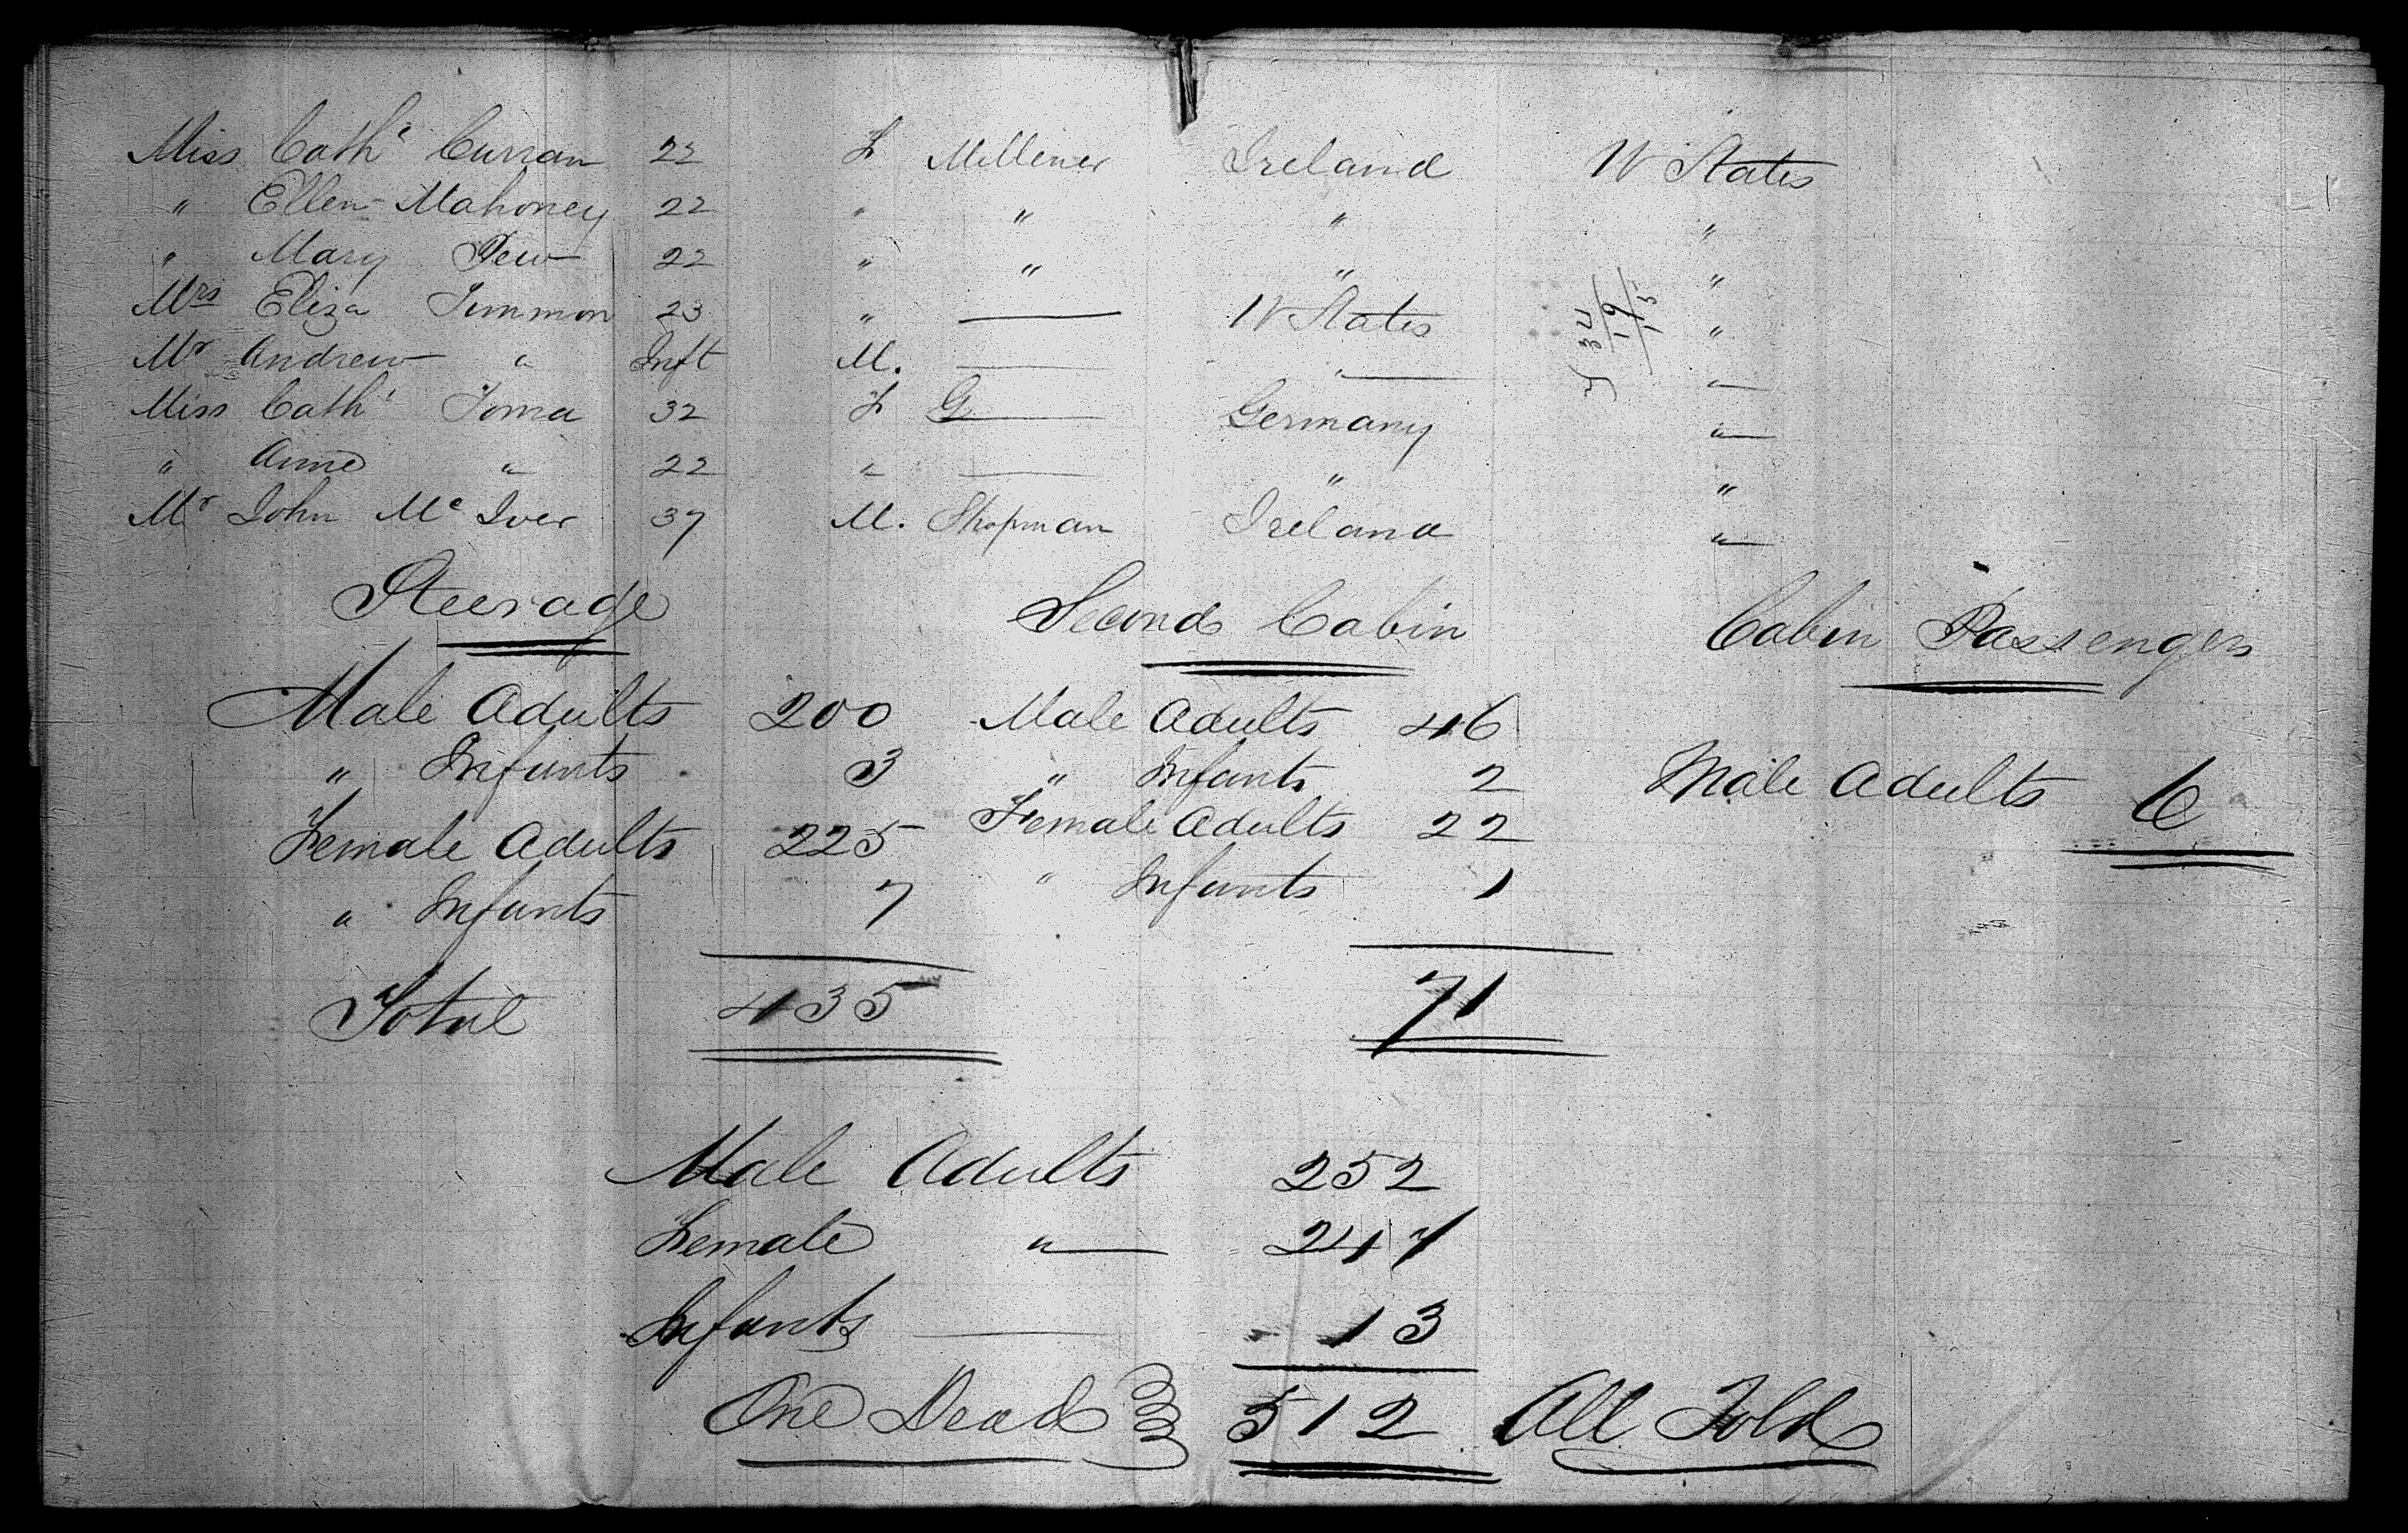 Miss Cath^e Curran 22 F Milliner Ireland U States
" Ellen Mahoney 22 " " " "
" Mary Pew 22 " " " "
Mrs Eliza Timmon 23 " — U States "
Mr Andrew " Inft M. — " "
Miss Cath^e Toma 32 F G— Germany "
" Anne " 22 " — " "
Mr John McIver 37 M. Shopman Ireland "
34
19
15
Steerage
Male Adults 200
" Infants 3
Female Adults 225
" Infants 7
Total 435
Second Cabin
Male Adults 46
" Infants 2
Female Adults 22
" Infants 1
71
Cabin Passengers
Male Adults 6
Male Adults 252
Female " 247
Infants — 13
One Dead 512 All Told